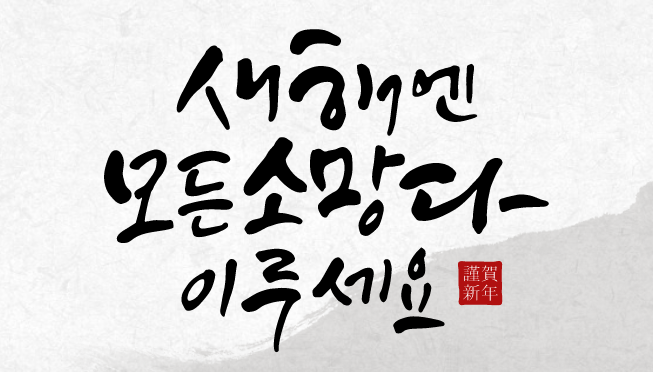 새해엔
모든 소망 다
이루세요
謹賀
新年